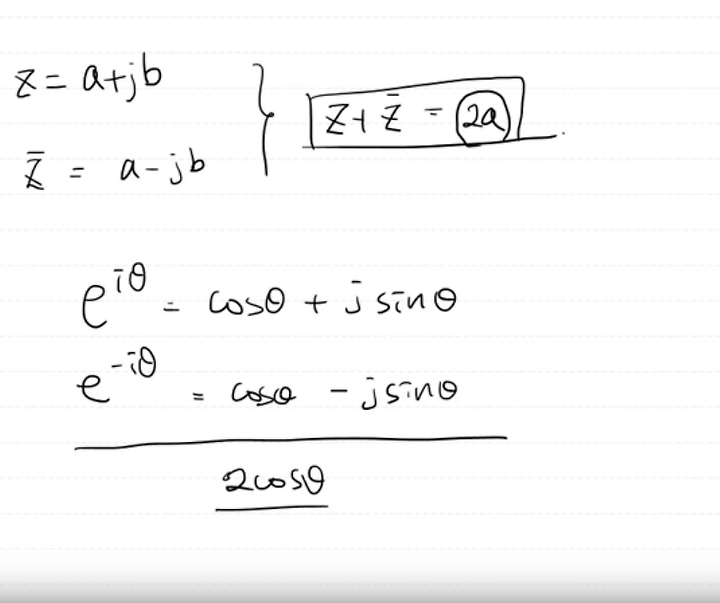 z = a+jb
z̄ = a-jb
z+z̄ = 2a
e^{iθ} = cosθ + j sinθ
e^{-iθ} = cosθ - j sinθ
2cosθ